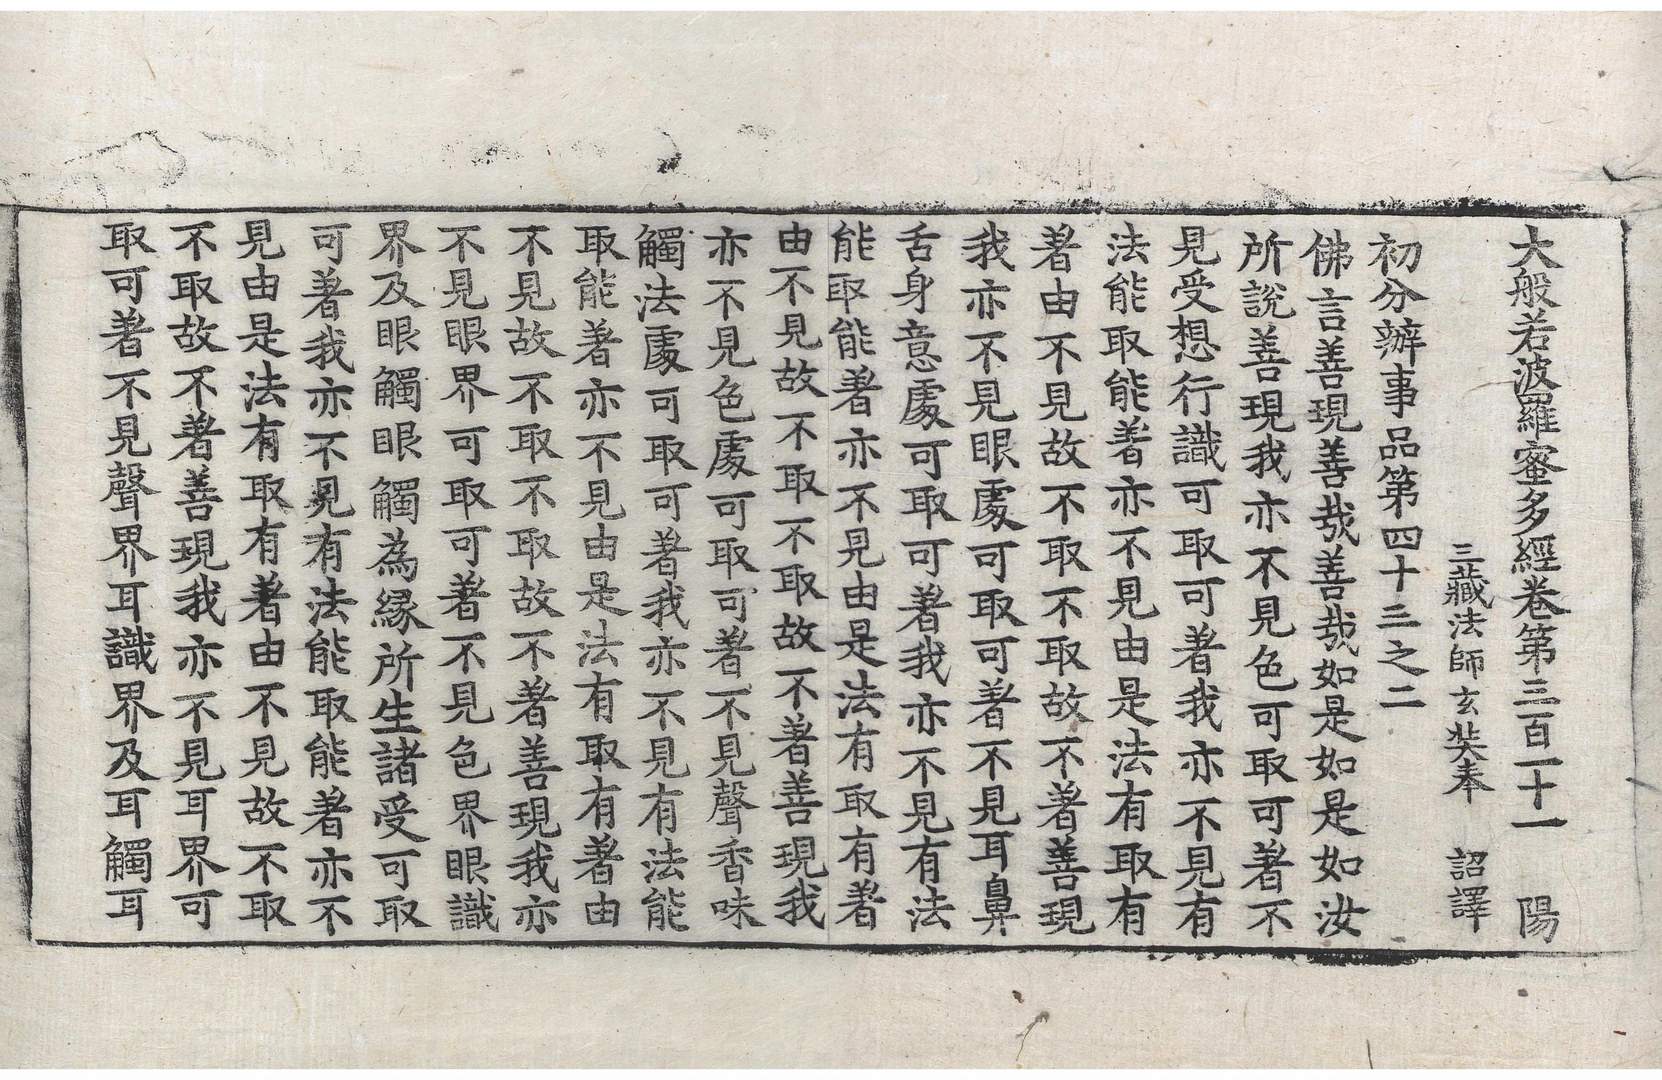 大般若波羅蜜多經卷第三百一十一　陽
三藏法師玄奘奉　詔譯
初分辦事品第四十三之二
佛言善現善哉善哉如是如是如汝
所說善現我亦不見色可取可著不
見受想行識可取可著我亦不見有
法能取能著亦不見由是法有取有
著由不見故不取不取故不著善現
我亦不見眼處可取可著不見耳鼻
舌身意處可取可著我亦不見有法
能取能著亦不見由是法有取有著
由不見故不取不取故不著善現我
亦不見色處可取可著不見聲香味
觸法處可取可著我亦不見有法能
取能著亦不見由是法有取有著由
不見故不取不取故不著善現我亦
不見眼界可取可著不見色界眼識
界及眼觸眼觸為緣所生諸受可取
可著我亦不見有法能取能著亦不
見由是法有取有著由不見故不取
不取故不著善現我亦不見耳界可
取可著不見聲界耳識界及耳觸耳